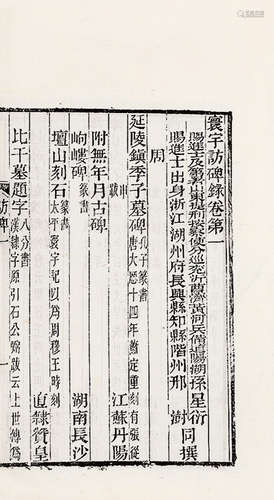 寰宇訪碑錄卷第一
賜進士及第山東提刑按察使分巡兖沂曹濟黃河兵備道陽湖孫星衍
賜進士出身浙江湖州府長興縣知縣階州邢澍同撰
周
延陵鎮季子墓碑 孔子篆書 唐大厯十四年蕭定重刻有張從申跋 江蘇丹陽
附無年月古碑
岣嶁碑 篆書 湖南長沙
壇山刻石 篆書 太平寰宇記以為周穆王時刻 直隸贊皇
比干墓題字 八分書 漢隸字原引石公弼跋云上世傳為
訪碑